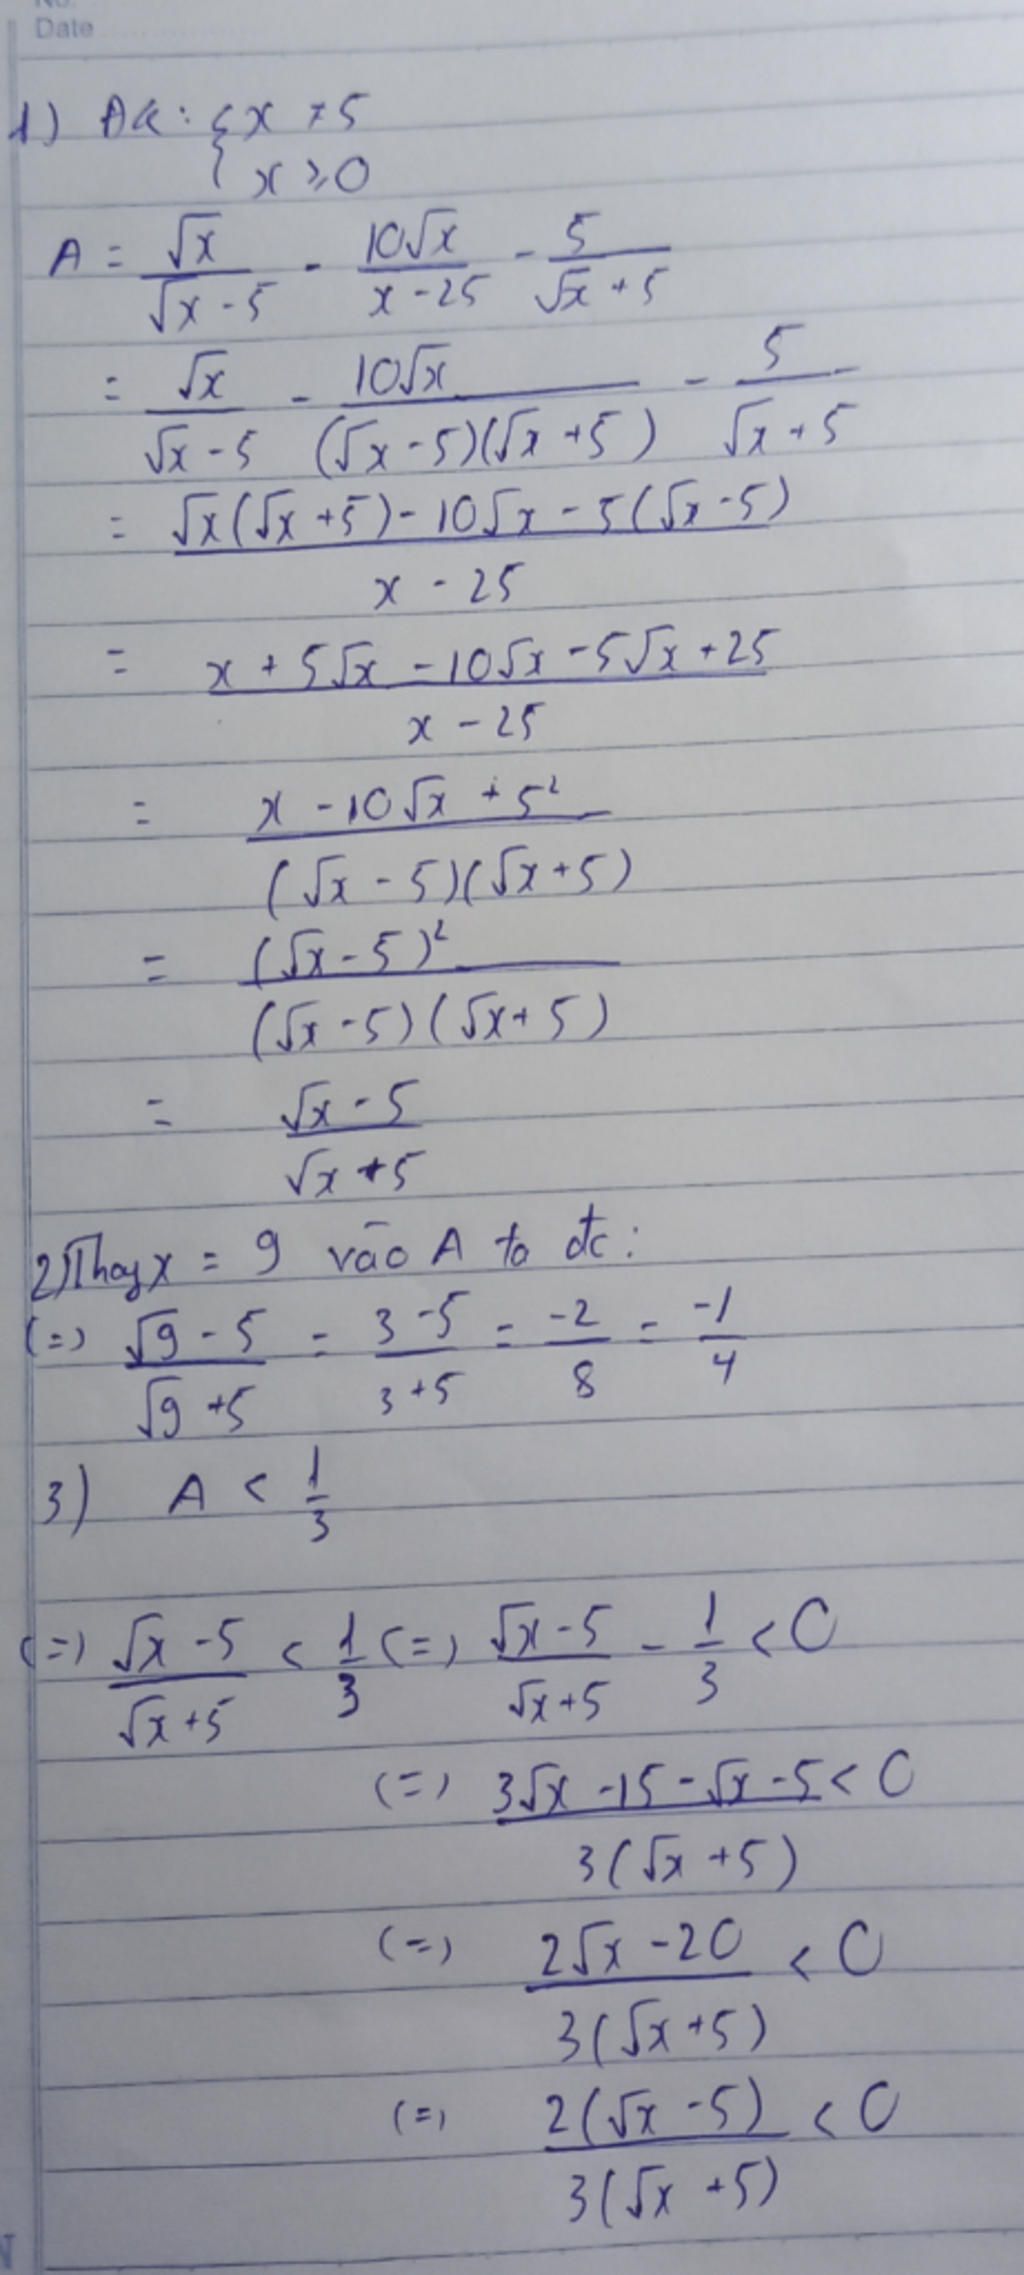 No.
Date
1) ĐK: { x ≠ 5
{ x ≥ 0
A = √x/(√x - 5) - 10√x/(x - 25) - 5/(√x + 5)
= √x/(√x - 5) - 10√x/((√x - 5)(√x + 5)) - 5/(√x + 5)
= (√x(√x + 5) - 10√x - 5(√x - 5))/(x - 25)
= (x + 5√x - 10√x - 5√x + 25)/(x - 25)
= (x - 10√x + 5²)/((√x - 5)(√x + 5))
= (√x - 5)²/((√x - 5)(√x + 5))
= (√x - 5)/(√x + 5)
2) Thay x = 9 vào A ta đc:
(=) (√9 - 5)/(√9 + 5) = (3 - 5)/(3 + 5) = -2/8 = -1/4
3) A < 1/3
(=) (√x - 5)/(√x + 5) < 1/3 (=) (√x - 5)/(√x + 5) - 1/3 < 0
(=) (3√x - 15 - √x - 5)/(3(√x + 5)) < 0
(=) (2√x - 20)/(3(√x + 5)) < 0
(=) 2(√x - 5)/(3(√x + 5)) < 0